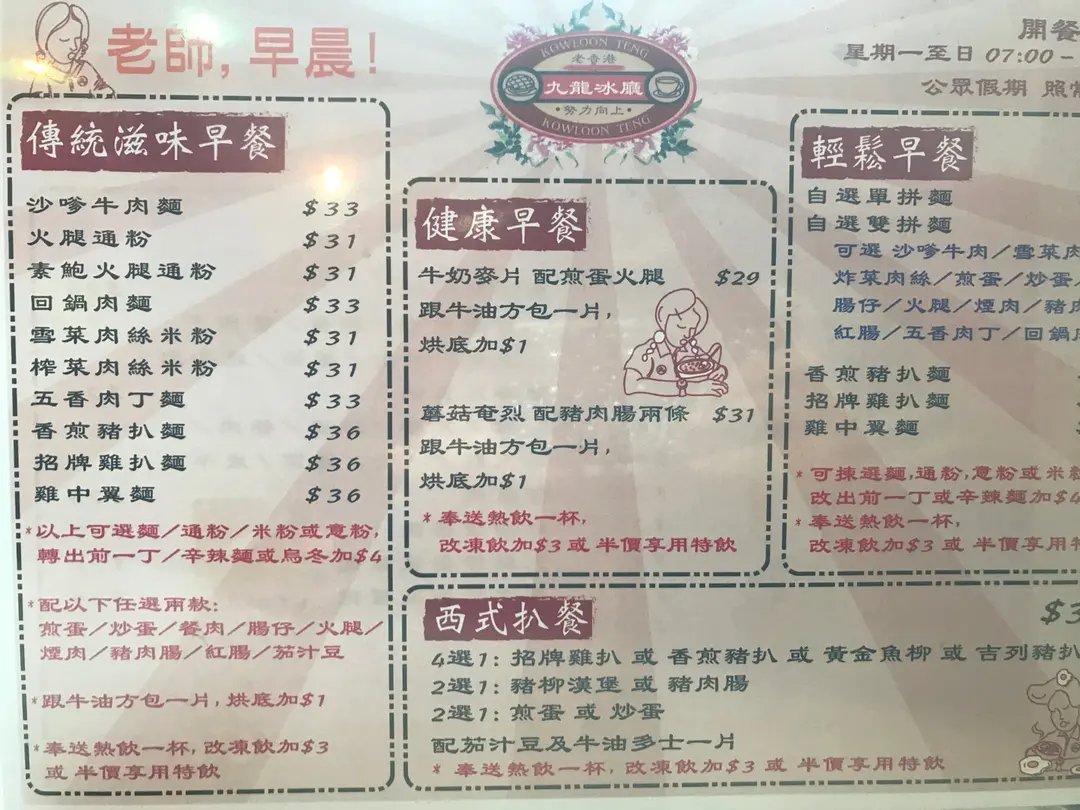 老師,早晨!
KOWLOON TENG
老香港
九龍冰廳
•努力向上•
KOWLOON TENG
開餐
星期一至日 07:00 -
公眾假期 照常
傳統滋味早餐
沙嗲牛肉麵 $33
火腿通粉 $31
素鮑火腿通粉 $31
回鍋肉麵 $33
雪菜肉絲米粉 $31
榨菜肉絲米粉 $31
五香肉丁麵 $33
香煎豬扒麵 $36
招牌雞扒麵 $36
雞中翼麵 $36
*以上可選麵/通粉/米粉或意粉,
轉出前一丁/辛辣麵或烏冬加$4
*配以下任選兩款:
煎蛋/炒蛋/餐肉/腸仔/火腿/
煙肉/豬肉腸/紅腸/茄汁豆
*跟牛油方包一片,烘底加$1
*奉送熱飲一杯,改凍飲加$3
或 半價享用特飲
健康早餐
牛奶麥片 配煎蛋火腿 $29
跟牛油方包一片,
烘底加$1
蘑菇奄烈 配豬肉腸兩條 $31
跟牛油方包一片,
烘底加$1
*奉送熱飲一杯,
改凍飲加$3 或 半價享用特飲
輕鬆早餐
自選單拼麵
自選雙拼麵
可選 沙嗲牛肉/雪菜肉
炸菜肉絲/煎蛋/炒蛋/
腸仔/火腿/煙肉/豬肉
紅腸/五香肉丁/回鍋
香煎豬扒麵
招牌雞扒麵
雞中翼麵
*可揀選麵,通粉,意粉或米粉
改出前一丁或辛辣麵加$4
*奉送熱飲一杯,
改凍飲加$3 或 半價享用特
西式扒餐 $3
4選1: 招牌雞扒 或 香煎豬扒 或 黃金魚柳 或 吉列豬扒
2選1: 豬柳漢堡 或 豬肉腸
2選1: 煎蛋 或 炒蛋
配茄汁豆及牛油多士一片
* 奉送熱飲一杯, 改凍飲加$3 或 半價享用特飲